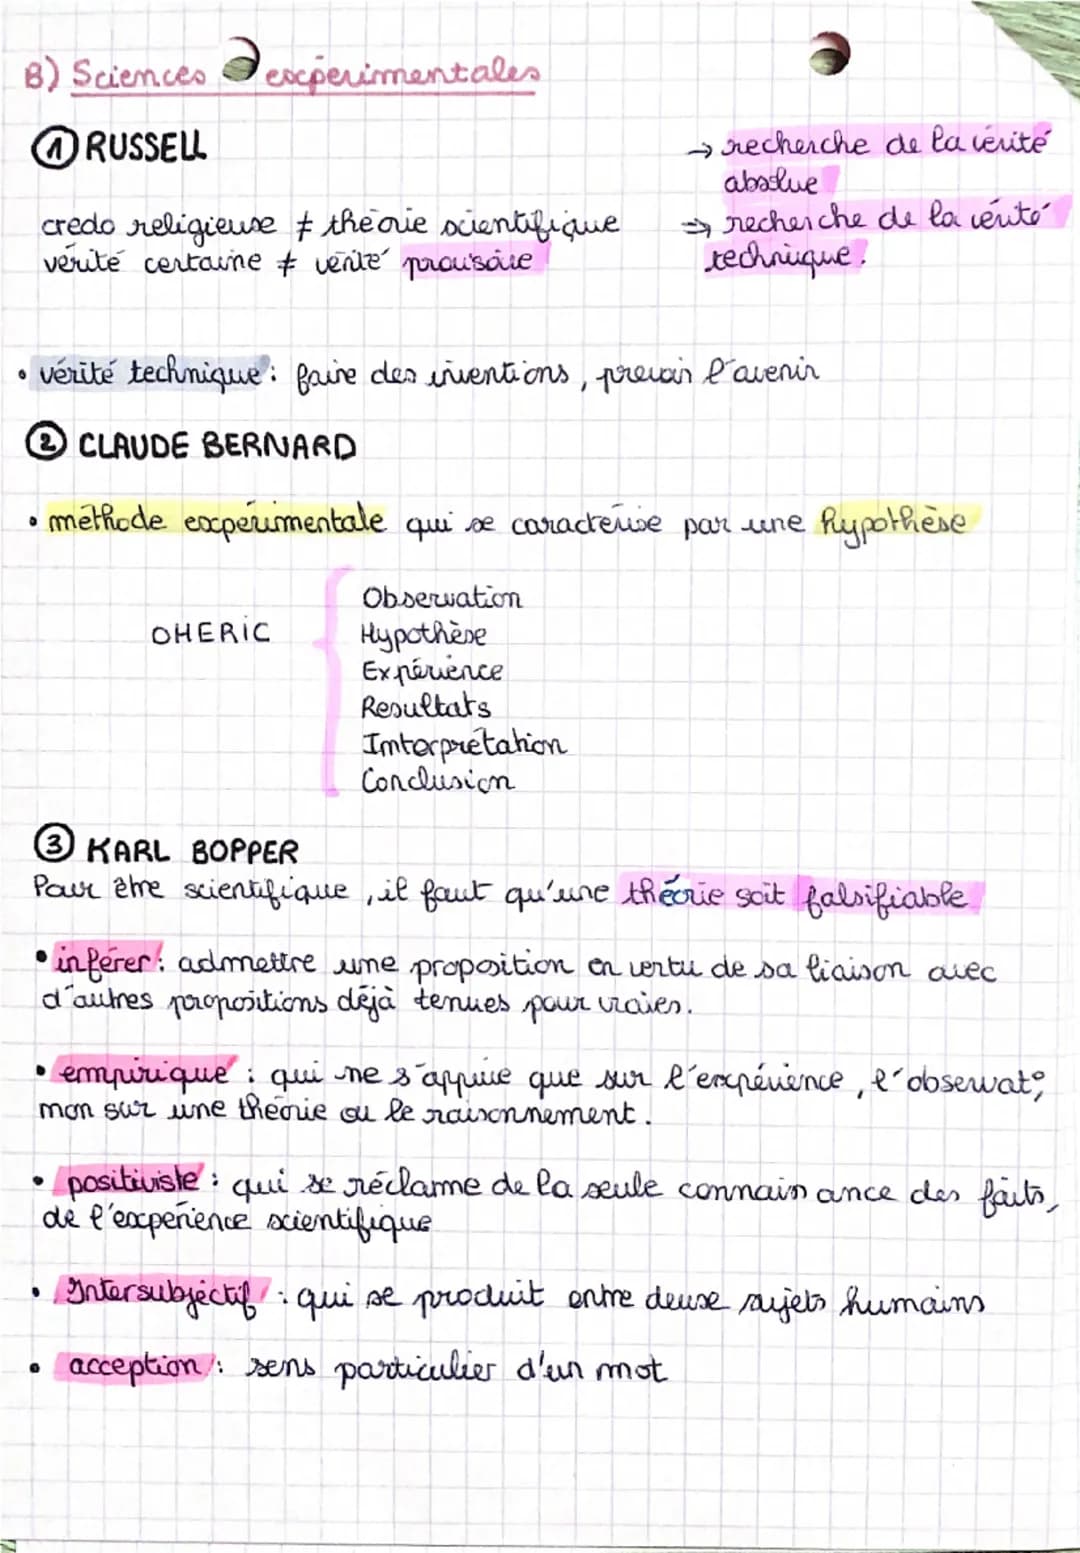 B) Sciences expérimentales
① RUSSELL
→ recherche de la vérité
absolue
credo religieuse ≠ théorie scientifique
⇒ recherche de la vérité
vérité certaine ≠ vérité provisoire
technique.
• vérité technique : faire des inventions, prevoir l'avenir
② CLAUDE BERNARD
• méthode expérimentale qui se caractérise par une hypothèse
OHERIC
Observation
Hypothèse
Expérience
Resultats
Interprétation
Conclusion
③ KARL BOPPER
Pour être scientifique, il faut qu'une théorie soit falsifiable
• inférer : admettre une proposition en vertu de sa liaison avec
d'autres propositions déjà tenues pour vraies.
• empirique : qui ne s'appuie que sur l'expérience, l'observat°,
non sur une théorie ou le raisonnement.
• positiviste : qui se réclame de la seule connaissance des faits,
de l'expérience scientifique
• Intersubjectif : qui se produit entre deux sujets humains
• acception : sens particulier d'un mot